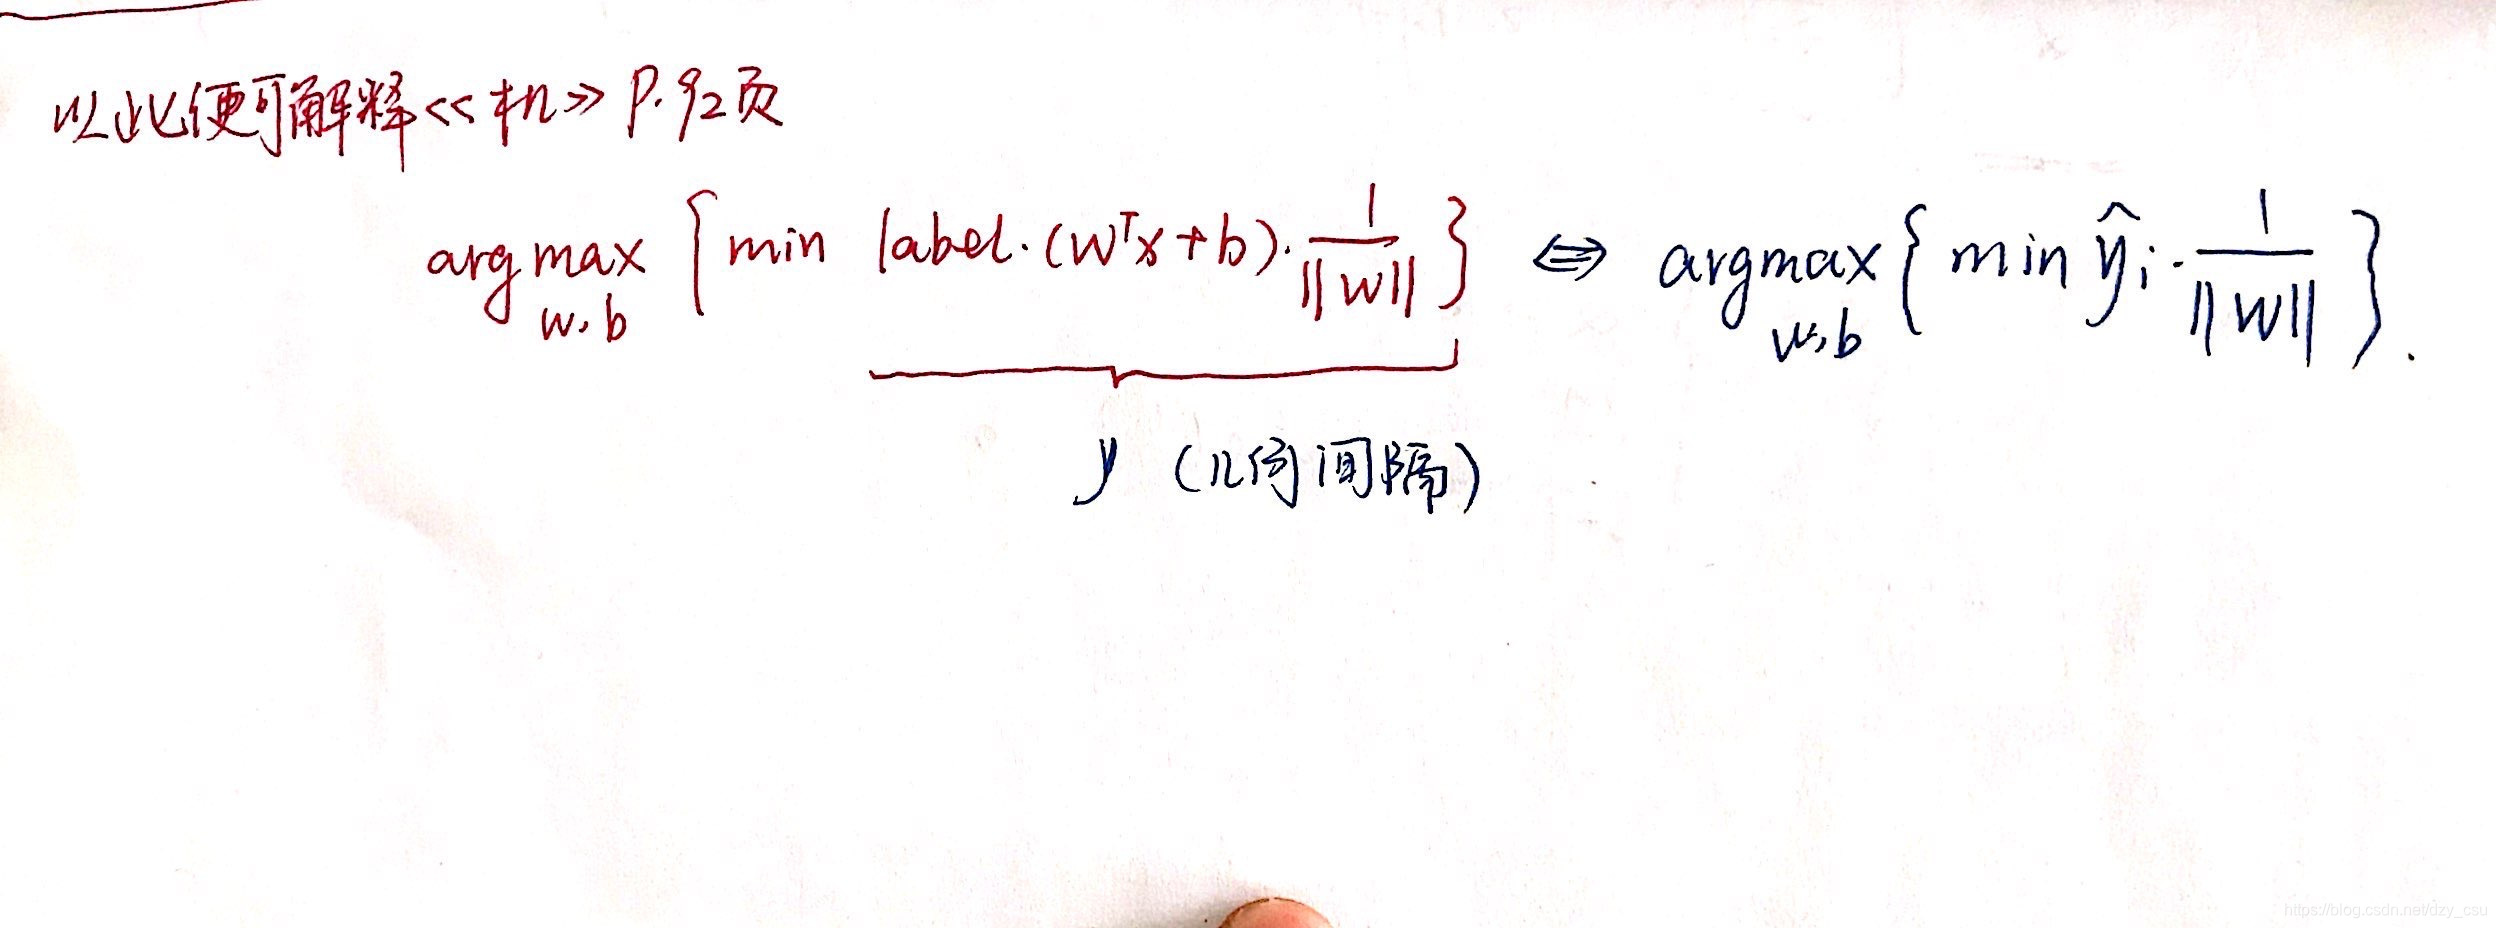 以此便可解释<<机>> P.92页
arg max w,b { min label·(wᵀx+b)·1/||w|| } ⇔ argmax w,b { min ŷi·1/||w|| }.
y (几何间隔)
https://blog.csdn.net/dzy_csu